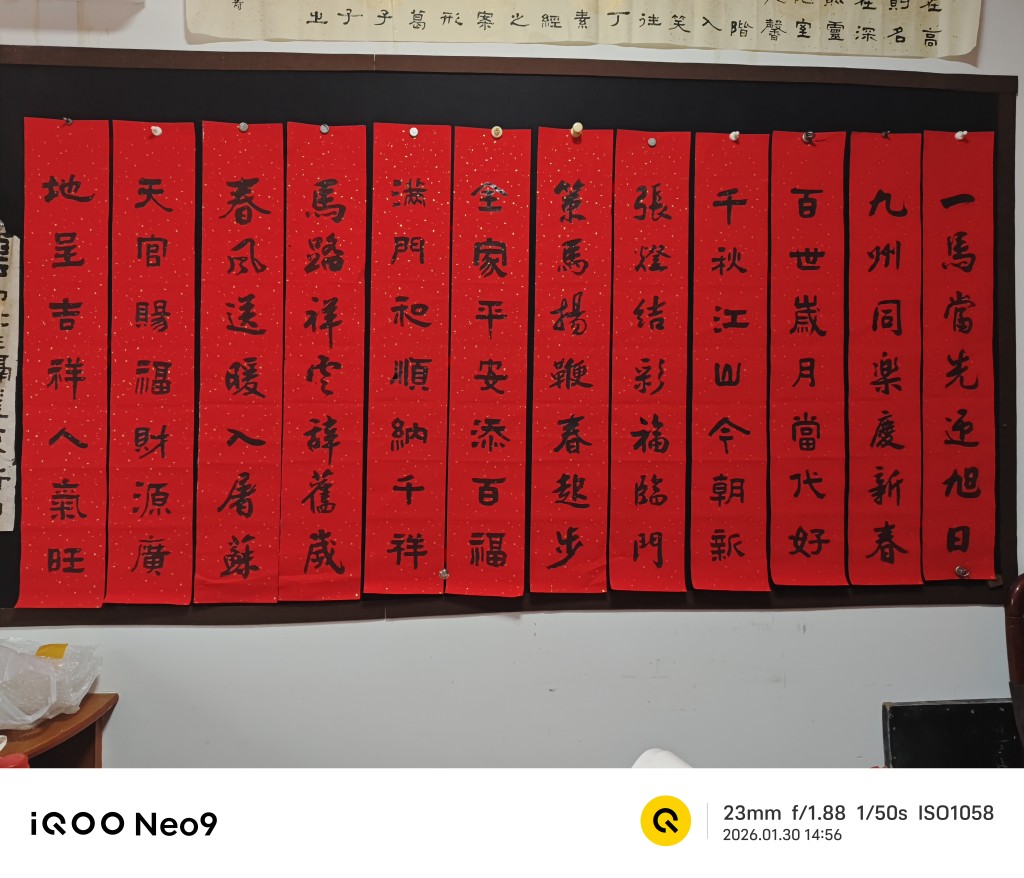 在高
則名
在深
靈
室
馨
階
入
笑
往
丁
素
經
之
案
形
葛
子
子
一馬當先迎旭日
九州同楽慶新春
百世歲月當代好
千秋江山今朝新
張燈結彩福臨門
策馬揚鞭春起步
全家平安添百福
滿門和順納千祥
馬踏祥云辭舊歲
春風送暖入屠蘇
天官賜福財源廣
地呈吉祥人氣旺
iQOO Neo9
23mm f/1.88 1/50s ISO1058
2026.01.30 14:56